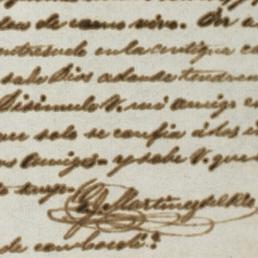 dea de como vivo. Por a
entresuelo en la antigua ca
sabe Dios a donde tendrem
Disimule V. mi amigo es
que solo se confia á los in
os amigos. y sabe V. que
to suyo.
J. Martinez del Rio
de comboschi.